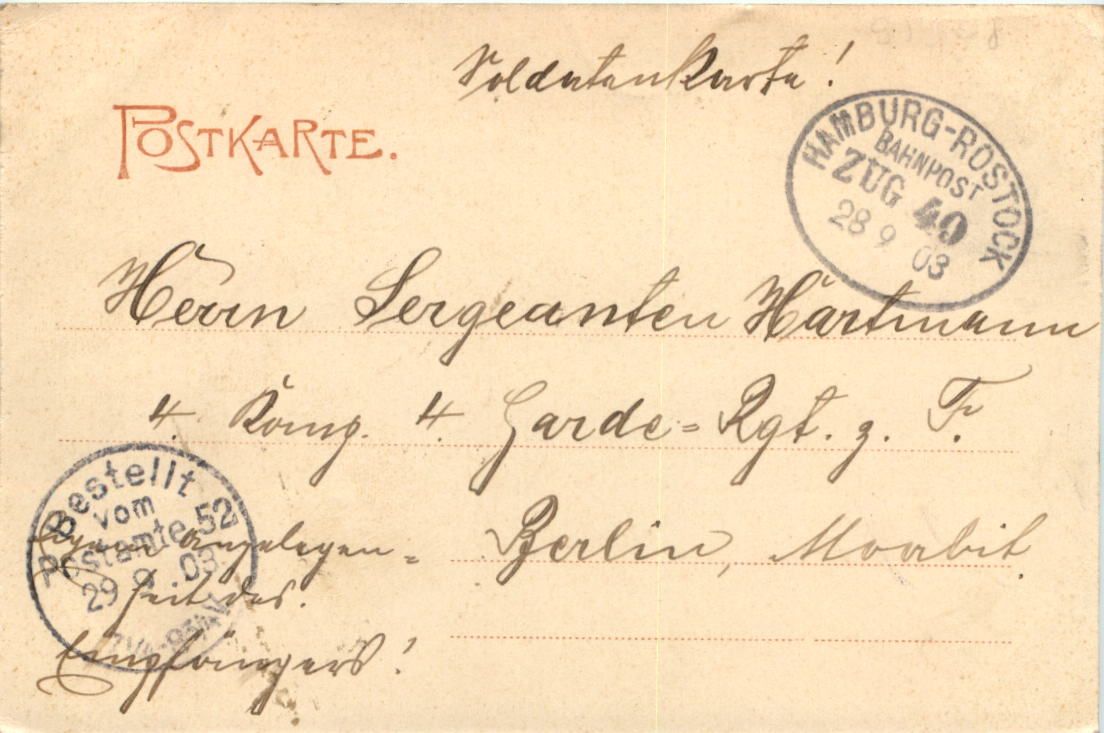 Soldatenkarte!
POSTKARTE.
HAMBURG-ROSTOCK
BAHNPOST
ZUG 40
28 9 03
Herrn Sergeanten Hartmann
4. Komp. 4. Garde=Rgt. z. F.
Berlin, Moabit
Bestellt
vom
Postamte 52
29 9.03
Eigene Angelegen=
heit des
Empfängers!